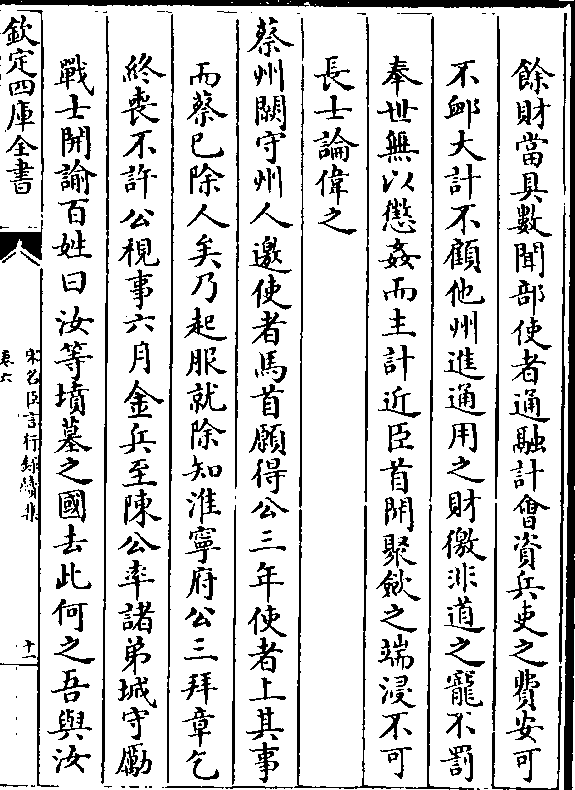 餘財當具數聞部使者通融計會資兵吏之費安可
不邮大計不顧他州進通用之財徼非道之寵不罰
奉世無以懲姦而主計近臣首開聚斂之端浸不可
長士論偉之
蔡州闕守州人邀使者馬首願得公三年使者上其事
而蔡已除人矣乃起服就除知淮寧府公三拜章乞
終喪不許公視事六月金兵至陳公率諸弟城守勵
戰士開諭百姓曰汝等墳墓之國去此何之吾與汝
欽定四庫全書
宋名臣言行錄續集
卷六
十一